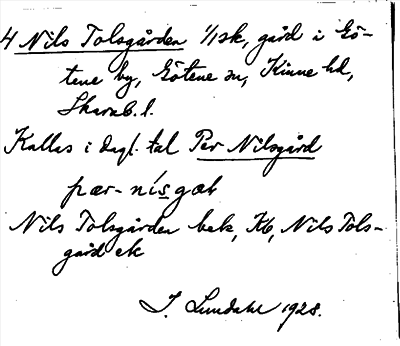 4 Nils Tolsgården 1/1 sk, gård i Gö-
tene by, Götene sn, Kinne hd,
Skarab. l.
Kallas i dagl. tal Per Nilsgård
pær-nísgaƚ
Nils Tolsgården bek, Kb, Nils Tols-
gård ek
J. Lundahl 1928.